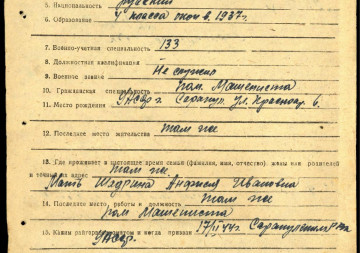 5. Национальность русский
6. Образование 4 класса окон в. 1937г.
7. Военно-учетная специальность 133
8. Должностная квалификация
9. Военное звание Не служил
10. Гражданская специальность пом. Машиниста
11. Место рождения УАССР г. Сарапул, Ул. Красноар. 6.
12. Последнее место жительства там же
13. Где проживает в настоящее время семья (фамилия, имя, отчество) жены или родителей
и точный их адрес там же
Мать Шадрина Анфиса Ивановна
14. Последнее место, работы и должность там же
пом Машиниста
15. Каким райгорвоенкоматом и когда призван 17/II 44г. Сарапульским
УАССР.